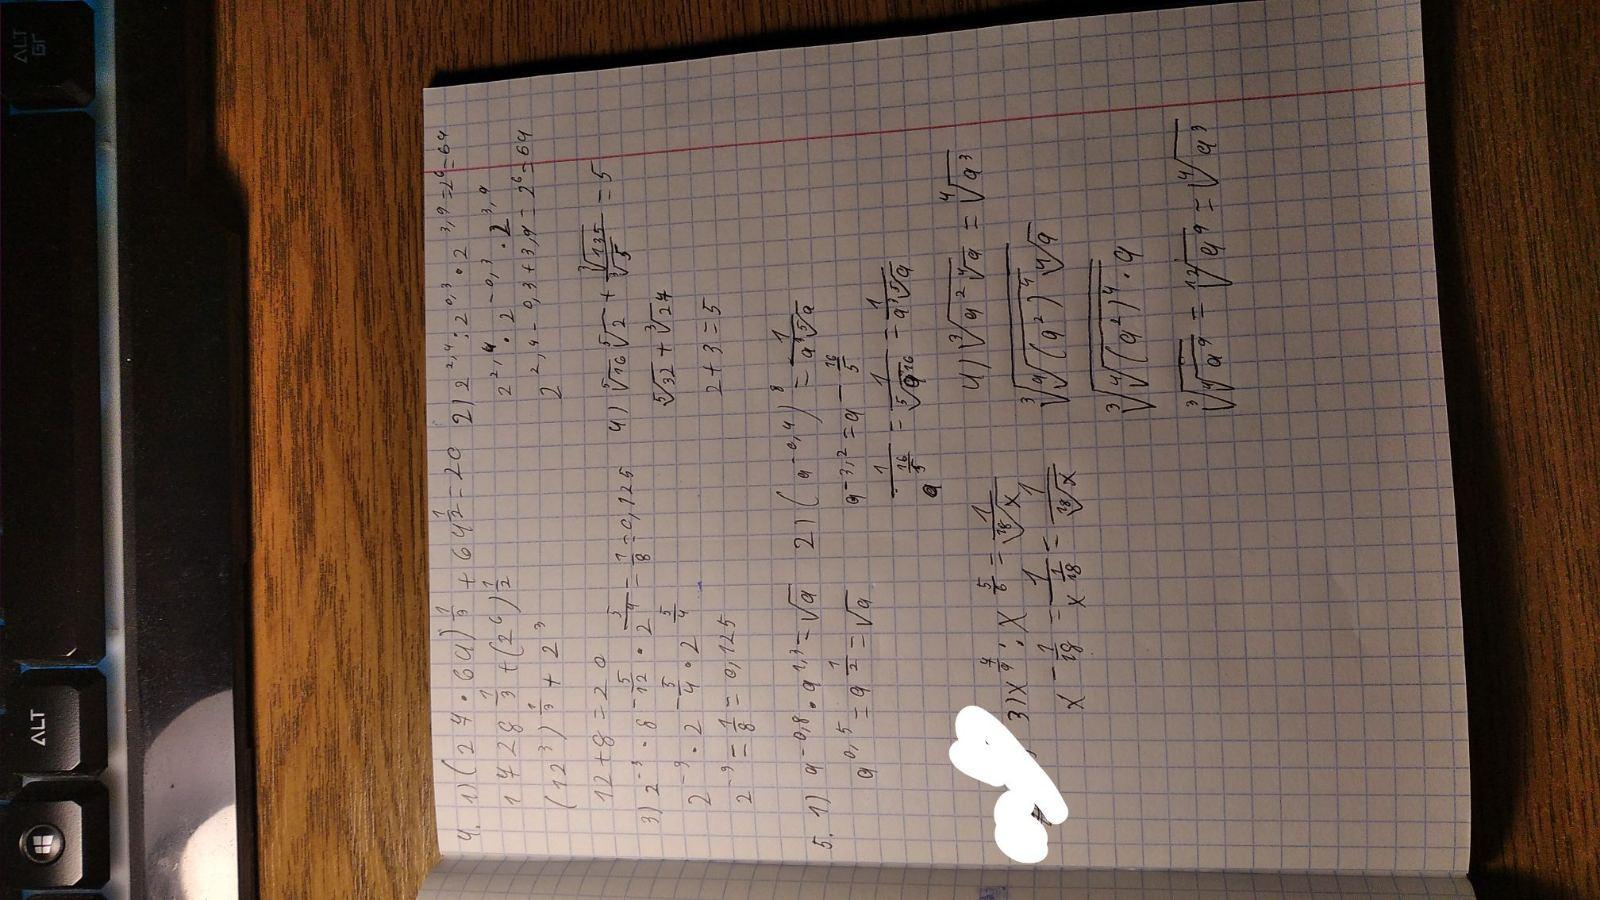 4. 1) (27 · 64)^{1/3} + 64^{1/2} = 20
1728^{1/3} + (2^6)^{1/2}
(12^3)^{1/3} + 2^3
12 + 8 = 20
2) 2^{2,4} : 2^{0,3} · 2^{3,9} = 2^6 = 64
2^{2,4} · 2^{-0,3} · 2^{3,9}
2^{2,4 - 0,3 + 3,9} = 2^6 = 64
3) 2^{-3} · 8^{-5/12} · 2^{5/4} = 1/8 = 0,125
2^{-3} · 2^{-5/4} · 2^{5/4}
2^{-3} = 1/8 = 0,125
4) ⁵√16 ⁵√2 + ³√135/³√5 = 5
⁵√32 + ³√27
2 + 3 = 5
5. 1) a^{-0,8} · a^{1,3} = √a
a^{0,5} = a^{1/2} = √a
2) (a^{-0,4})^8 = 1/(a³ ⁵√a)
a^{-3,2} = a^{-16/5}
1/a^{16/5} = 1/⁵√a^{16} = 1/(a³ ⁵√a)
3) x^{7/9} : x^{5/6} = 1/¹⁸√x
x^{-1/18} = 1/x^{1/18} = 1/¹⁸√x
4) ³√(a² ⁴√a) = ⁴√a³
³√(⁴√(a²)⁴ ⁴√a)
³√(⁴√((a²)⁴ · a))
³√(⁴√a⁹) = ¹²√a⁹ = ⁴√a³
ALT
ALT GR